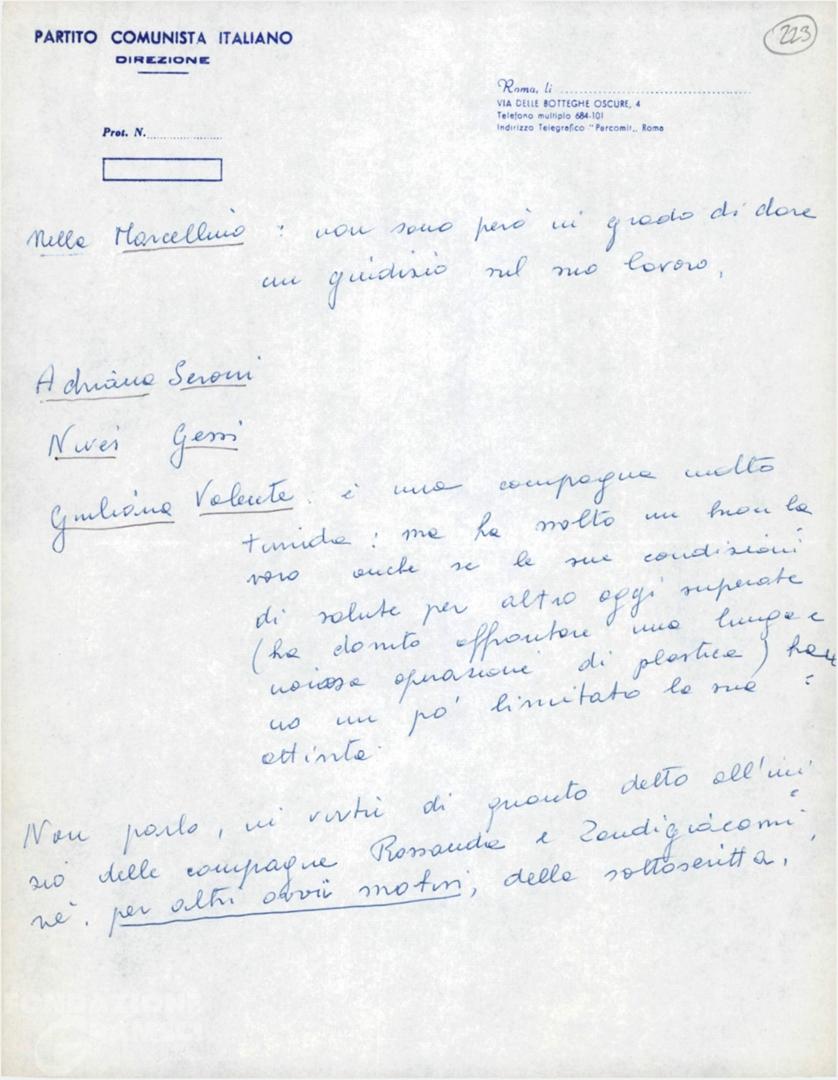 PARTITO COMUNISTA ITALIANO
DIREZIONE
223
Roma, li
VIA DELLE BOTTEGHE OSCURE, 4
Telefono multiplo 684-101
Indirizzo Telegrafico "Percomit„ Roma
Prot. N.
Nella Marcellino : non sono però in grado di dare
un giudizio sul suo lavoro,
Adriana Seroni
Nives Gessi
Giuliana Valente. è una compagna molto
timida : ma ha svolto un buon la
voro anche se le sue condizioni
di salute per altro oggi superate
(ha dovuto affrontare una lunga e
noiosa operazione di plastica) han
no un pò limitato la sua
attività.
Non parlo, in virtù di quanto detto all'ini
zio delle compagne Rossanda e Zandigiacomi,
nè. per altri ovvii motivi, della sottoscritta.
FONDAZIONE
GRAMSCI